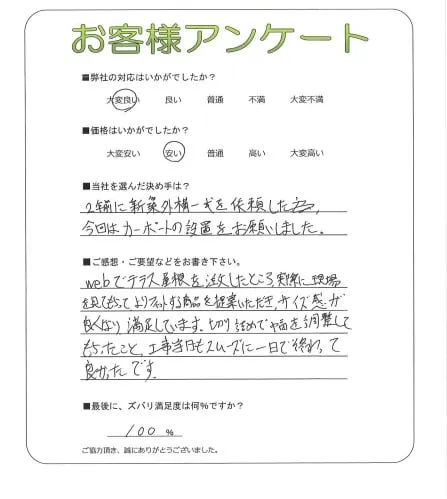 お客様アンケート
■弊社の対応はいかがでしたか？
大変良い 良い 普通 不満 大変不満
■価格はいかがでしたか？
大変安い 安い 普通 高い 大変高い
■当社を選んだ決め手は？
2年前に新築外構一式を依頼した為、
今回はカーポートの設置をお願いしました。
■ご感想・ご要望などをお書き下さい。
webでテラス屋根を注文したところ実際に現場
を見てもらってよりフィットする商品を提案いただき、サイズ感が
良くなり満足しています。切り詰めで幅を調整して
もらったこと、工事当日もスムーズに一日で終わって
良かったです。
■最後に、ズバリ満足度は何%ですか？
100 %
ご協力頂き、誠にありがとうございました。